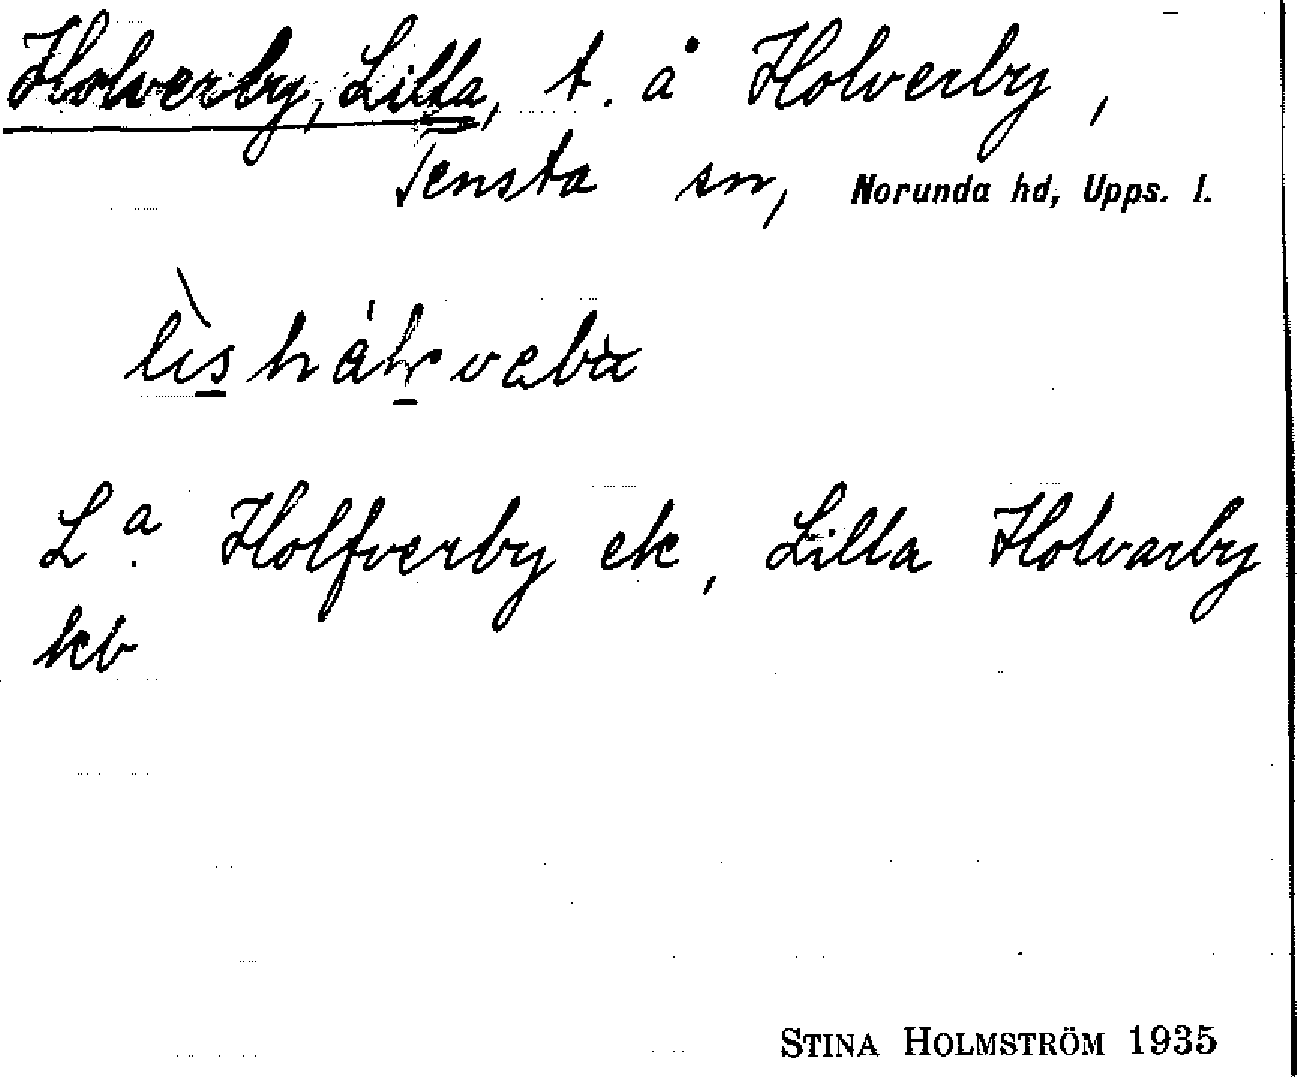 Holverby, Lilla, t. å Holverby,
Tensta sn, Norunda hd, Upps. l.
La. Holfverby ek, Lilla Holvarby
kb
STINA HOLMSTRÖM 1935